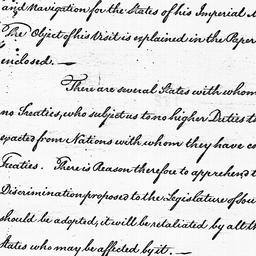 and Navigation for the States of his Imperial
The Object of his Visit is explained in the Paper
enclosed. —
There are several States with whom
no Treaties, who subject us to no higher Duties t
exacted from Nations with whom they have co
Treaties. There is Reason therefore to apprehend t
Discrimination proposed to the Legislature of
should be adopted, it will be retaliated by all th
States who may be affected by it. —